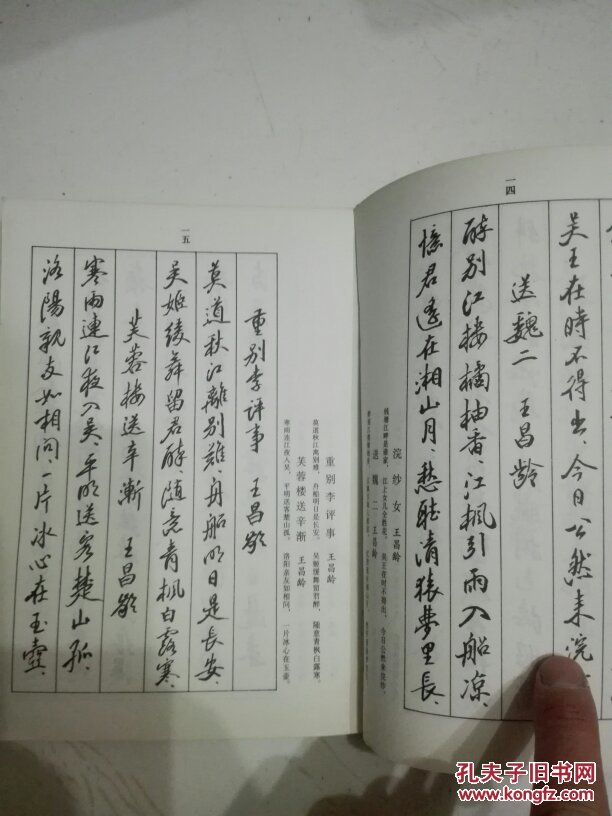 一四
吴王在時不得出、今日公然来浣
送魏二 王昌龄
醉别江楼橘柚香、江枫引雨入船凉、
憶君遥在湘山月、愁聽清猿夢里長、
浣纱女 王昌龄
钱塘江畔是谁家，江上女儿全胜花。吴王在时不得出，今日公然来浣纱。
送魏二 王昌龄
一五
重别李评事 王昌龄
莫道秋江離别難、舟船明日是長安、
吴姬缓舞留君醉、随意青枫白露寒、
芙蓉楼送辛漸 王昌龄
寒雨連江夜入吴、平明送客楚山孤、
洛陽親友如相问、一片冰心在玉壶、
重别李评事 王昌龄
莫道秋江离别难，舟船明日是长安。 吴姬缓舞留君醉，随意青枫白露寒。
芙蓉楼送辛渐 王昌龄
寒雨连江夜入吴，平明送客楚山孤。 洛阳亲友如相问，一片冰心在玉壶。
孔夫子旧书网
www.kongfz.com